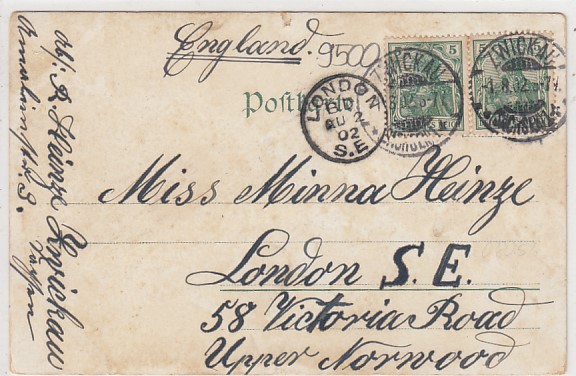 England.
9500
Postk
5
5
ZWICKAU
ZWICKAU
1.8.02
LONDON
AU 2
02
S.E
Miss Minna Heinze
London S.E.
58 Victoria Road
Upper Norwood
Abs. R. Heinze Zwickau